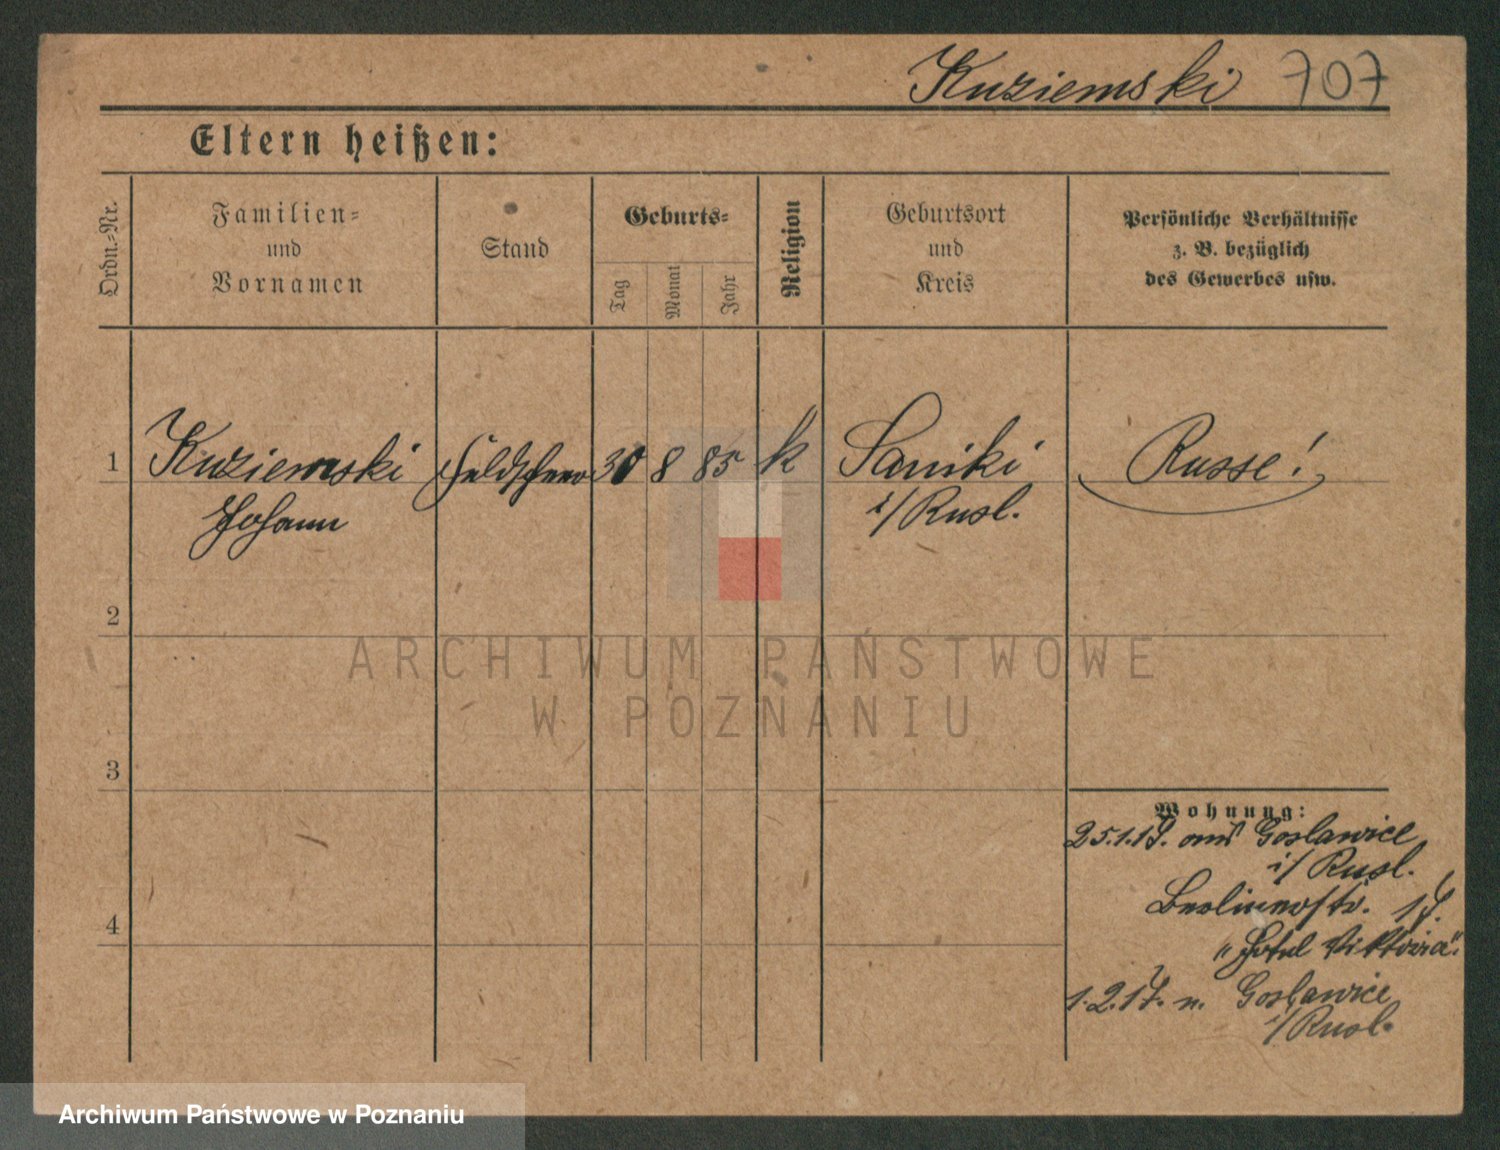 Kuziemski 707
Eltern heißen:
Ordn.-Nr.
Familien-
und
Vornamen
Stand
Geburts-
Tag
Monat
Jahr
Religion
Geburtsort
und
Kreis
Persönliche Verhältnisse
z. B. bezüglich
des Gewerbes usw.
1 Kuziemski Feldscheer 30 8 85 k Saniki Russe!
Johann i/Rusl.
2
3
4
Wohnung:
25.1.17. aus Goslawice
i/Rusl.
Berlinerstr. 17.
"Hotel Viktoria".
1.2.17. n. Goslawice
i/Rusl.
ARCHIWUM PAŃSTWOWE
W POZNANIU
Archiwum Państwowe w Poznaniu